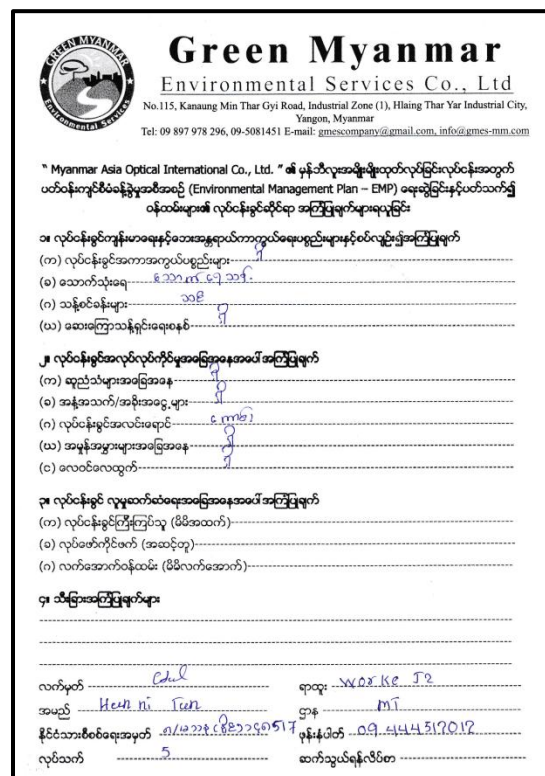 GREEN MYANMAR
Environmental Services
Green Myanmar
Environmental Services Co., Ltd
No.115, Kanaung Min Thar Gyi Road, Industrial Zone (1), Hlaing Thar Yar Industrial City,
Yangon, Myanmar
Tel: 09 897 978 296, 09-5081451 E-mail: gmescompany@gmail.com, info@gmes-mm.com
" Myanmar Asia Optical International Co., Ltd. " ၏ မှန်ဘီလူးအမျိုးမျိုးထုတ်လုပ်ခြင်းလုပ်ငန်းအတွက်
ပတ်ဝန်းကျင်စီမံခန့်ခွဲမှုအစီအစဉ် (Environmental Management Plan – EMP) ရေးဆွဲခြင်းနှင့်ပတ်သက်၍
ဝန်ထမ်းများ၏ လုပ်ငန်းခွင်ဆိုင်ရာ အကြံပြုချက်များရယူခြင်း
၁။ လုပ်ငန်းခွင်ကျန်းမာရေးနှင့်ဘေးအန္တရာယ်ကာကွယ်ရေးပစ္စည်းများနှင့်စပ်လျဉ်း၍အကြံပြုချက်
(က) လုပ်ငန်းခွင်အကာအကွယ်ပစ္စည်းများ ရှိ
(ခ) သောက်သုံးရေ သောက်ရေသန့်
(ဂ) သန့်စင်ခန်းများ
(ဃ) ဆေးကြောသန့်ရှင်းရေးစနစ် ရှိ
၂။ လုပ်ငန်းခွင်အလုပ်လုပ်ကိုင်မှုအခြေအနေအပေါ် အကြံပြုချက်
(က) ဆူညံသံများအခြေအနေ ရှိ
(ခ) အနံ့အသက်/အခိုးအငွေ့များ ရှိ
(ဂ) လုပ်ငန်းခွင်အလင်းရောင် ကောင်း
(ဃ) အမှုန်အမွှားများအခြေအနေ ရှိ
(င) လေဝင်လေထွက် ရှိ
၃။ လုပ်ငန်းခွင် လူမှုဆက်ဆံရေးအခြေအနေအပေါ် အကြံပြုချက်
(က) လုပ်ငန်းခွင်ကြီးကြပ်သူ (မိမိအထက်)
(ခ) လုပ်ဖော်ကိုင်ဖက် (အဆင့်တူ)
(ဂ) လက်အောက်ဝန်ထမ်း (မိမိလက်အောက်)
၄။ သီးခြားအကြံပြုချက်များ
လက်မှတ် ရာထူး Worke J2
အမည် Tun ဌာန MT
နိုင်ငံသားစိစစ်ရေးအမှတ် ဖုန်းနံပါတ် 09 444517012
လုပ်သက် 5 ဆက်သွယ်ရန်လိပ်စာ